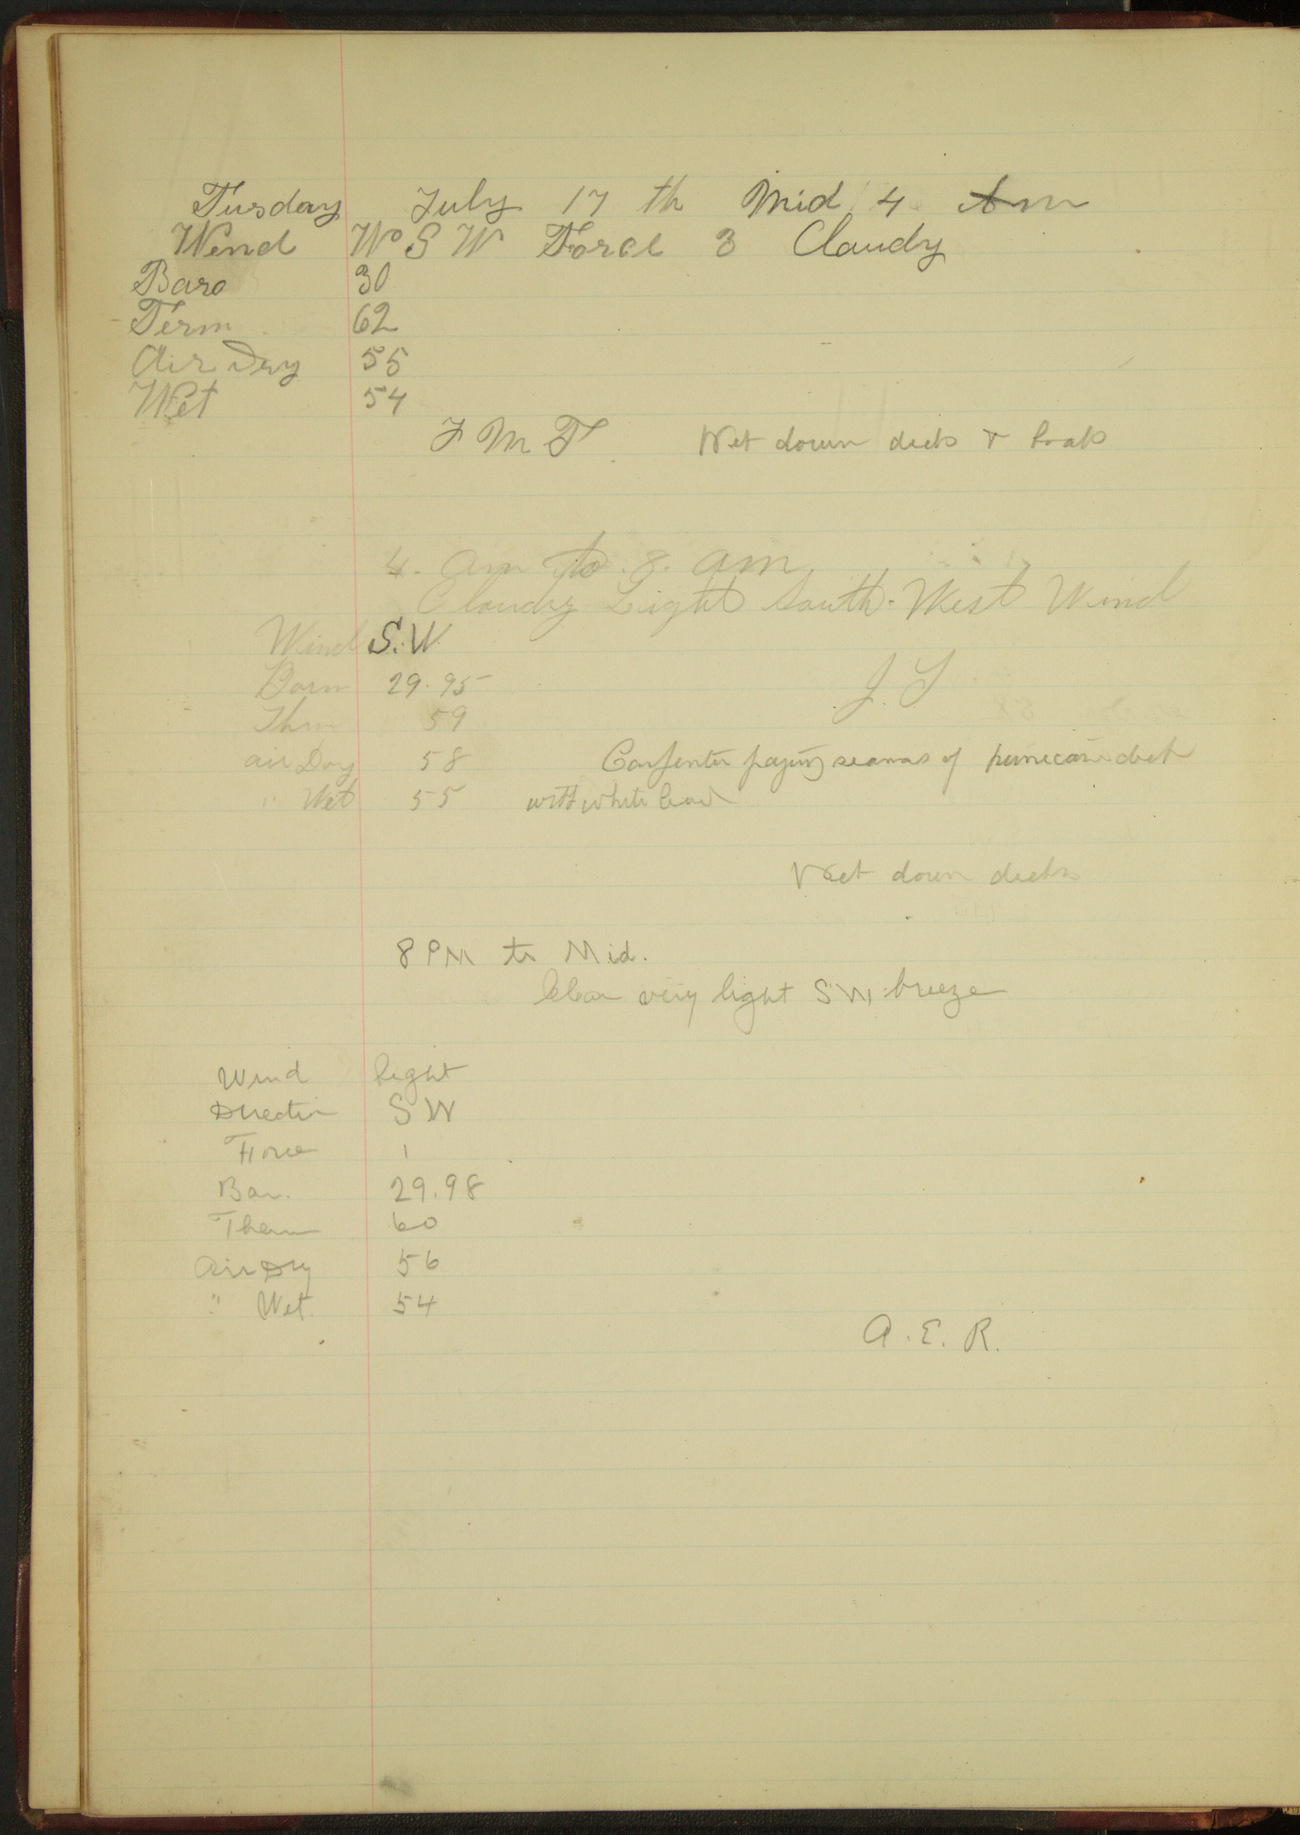 Tusday July 17 th Mid 4 Am
Wend W S W Force 3 Claudy
Baro 30
Term 62
Air Dry 55
Wet 54
J M T Wet down decks & boats
4. am to 8. am
Cloudy Light South-West Wind
Wind S.W.
Barm 29.95
J. S
Thm 59
air Dry 58 Carpenter paying seams of hurricane deck
" Wet 55 with white lead
Wet down decks
8 PM to Mid.
Clear very light SW breeze
Wind light
Direction SW
Force 1
Bar. 29.98
Therm 60
Air Dry 56
" Wet. 54
A. E. R.